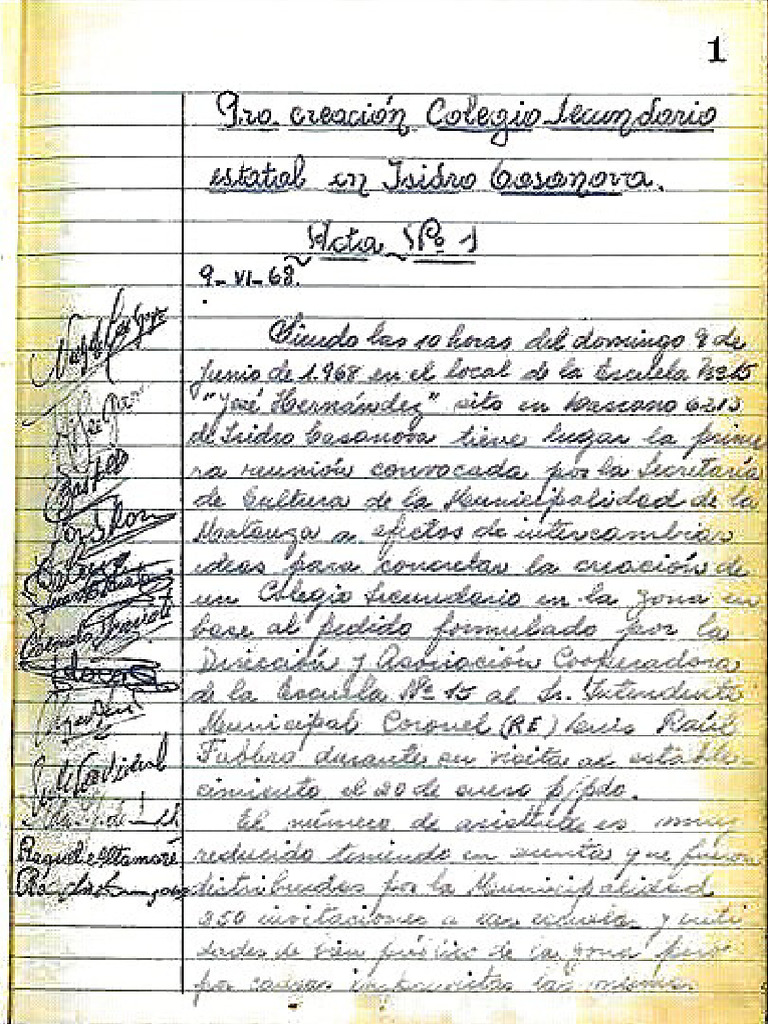 1
Pro. creación Colegio Secundario
estatal en Isidro Casanova.
Acta Nº 1
9-VI-68.
Siendo las 10 horas del domingo 9 de
junio de 1.968 en el local de la Escuela Nº 15
"José Hernández" sito en Lascano 6212
de Isidro Casanova tiene lugar la prime
ra reunión convocada por la Secretaría
de Cultura de la Municipalidad de La
Matanza a efectos de intercambiar
ideas para concretar la creación de
un Colegio Secundario en la zona en
base al pedido formulado por la
Dirección y Asociación Cooperadora
de la Escuela Nº 15 al Sr. Intendente
Municipal Coronel (RE) Luis Raúl
durante su visita al estable-
cimiento el 20 de enero p/pdo.
El número de asistentes es muy
reducido teniendo en cuenta que fueron
distribuidas por la Municipalidad
350 invitaciones a las escuelas y enti
dades de bien público de la zona pero
por causas las mismas
Raquel Altamore